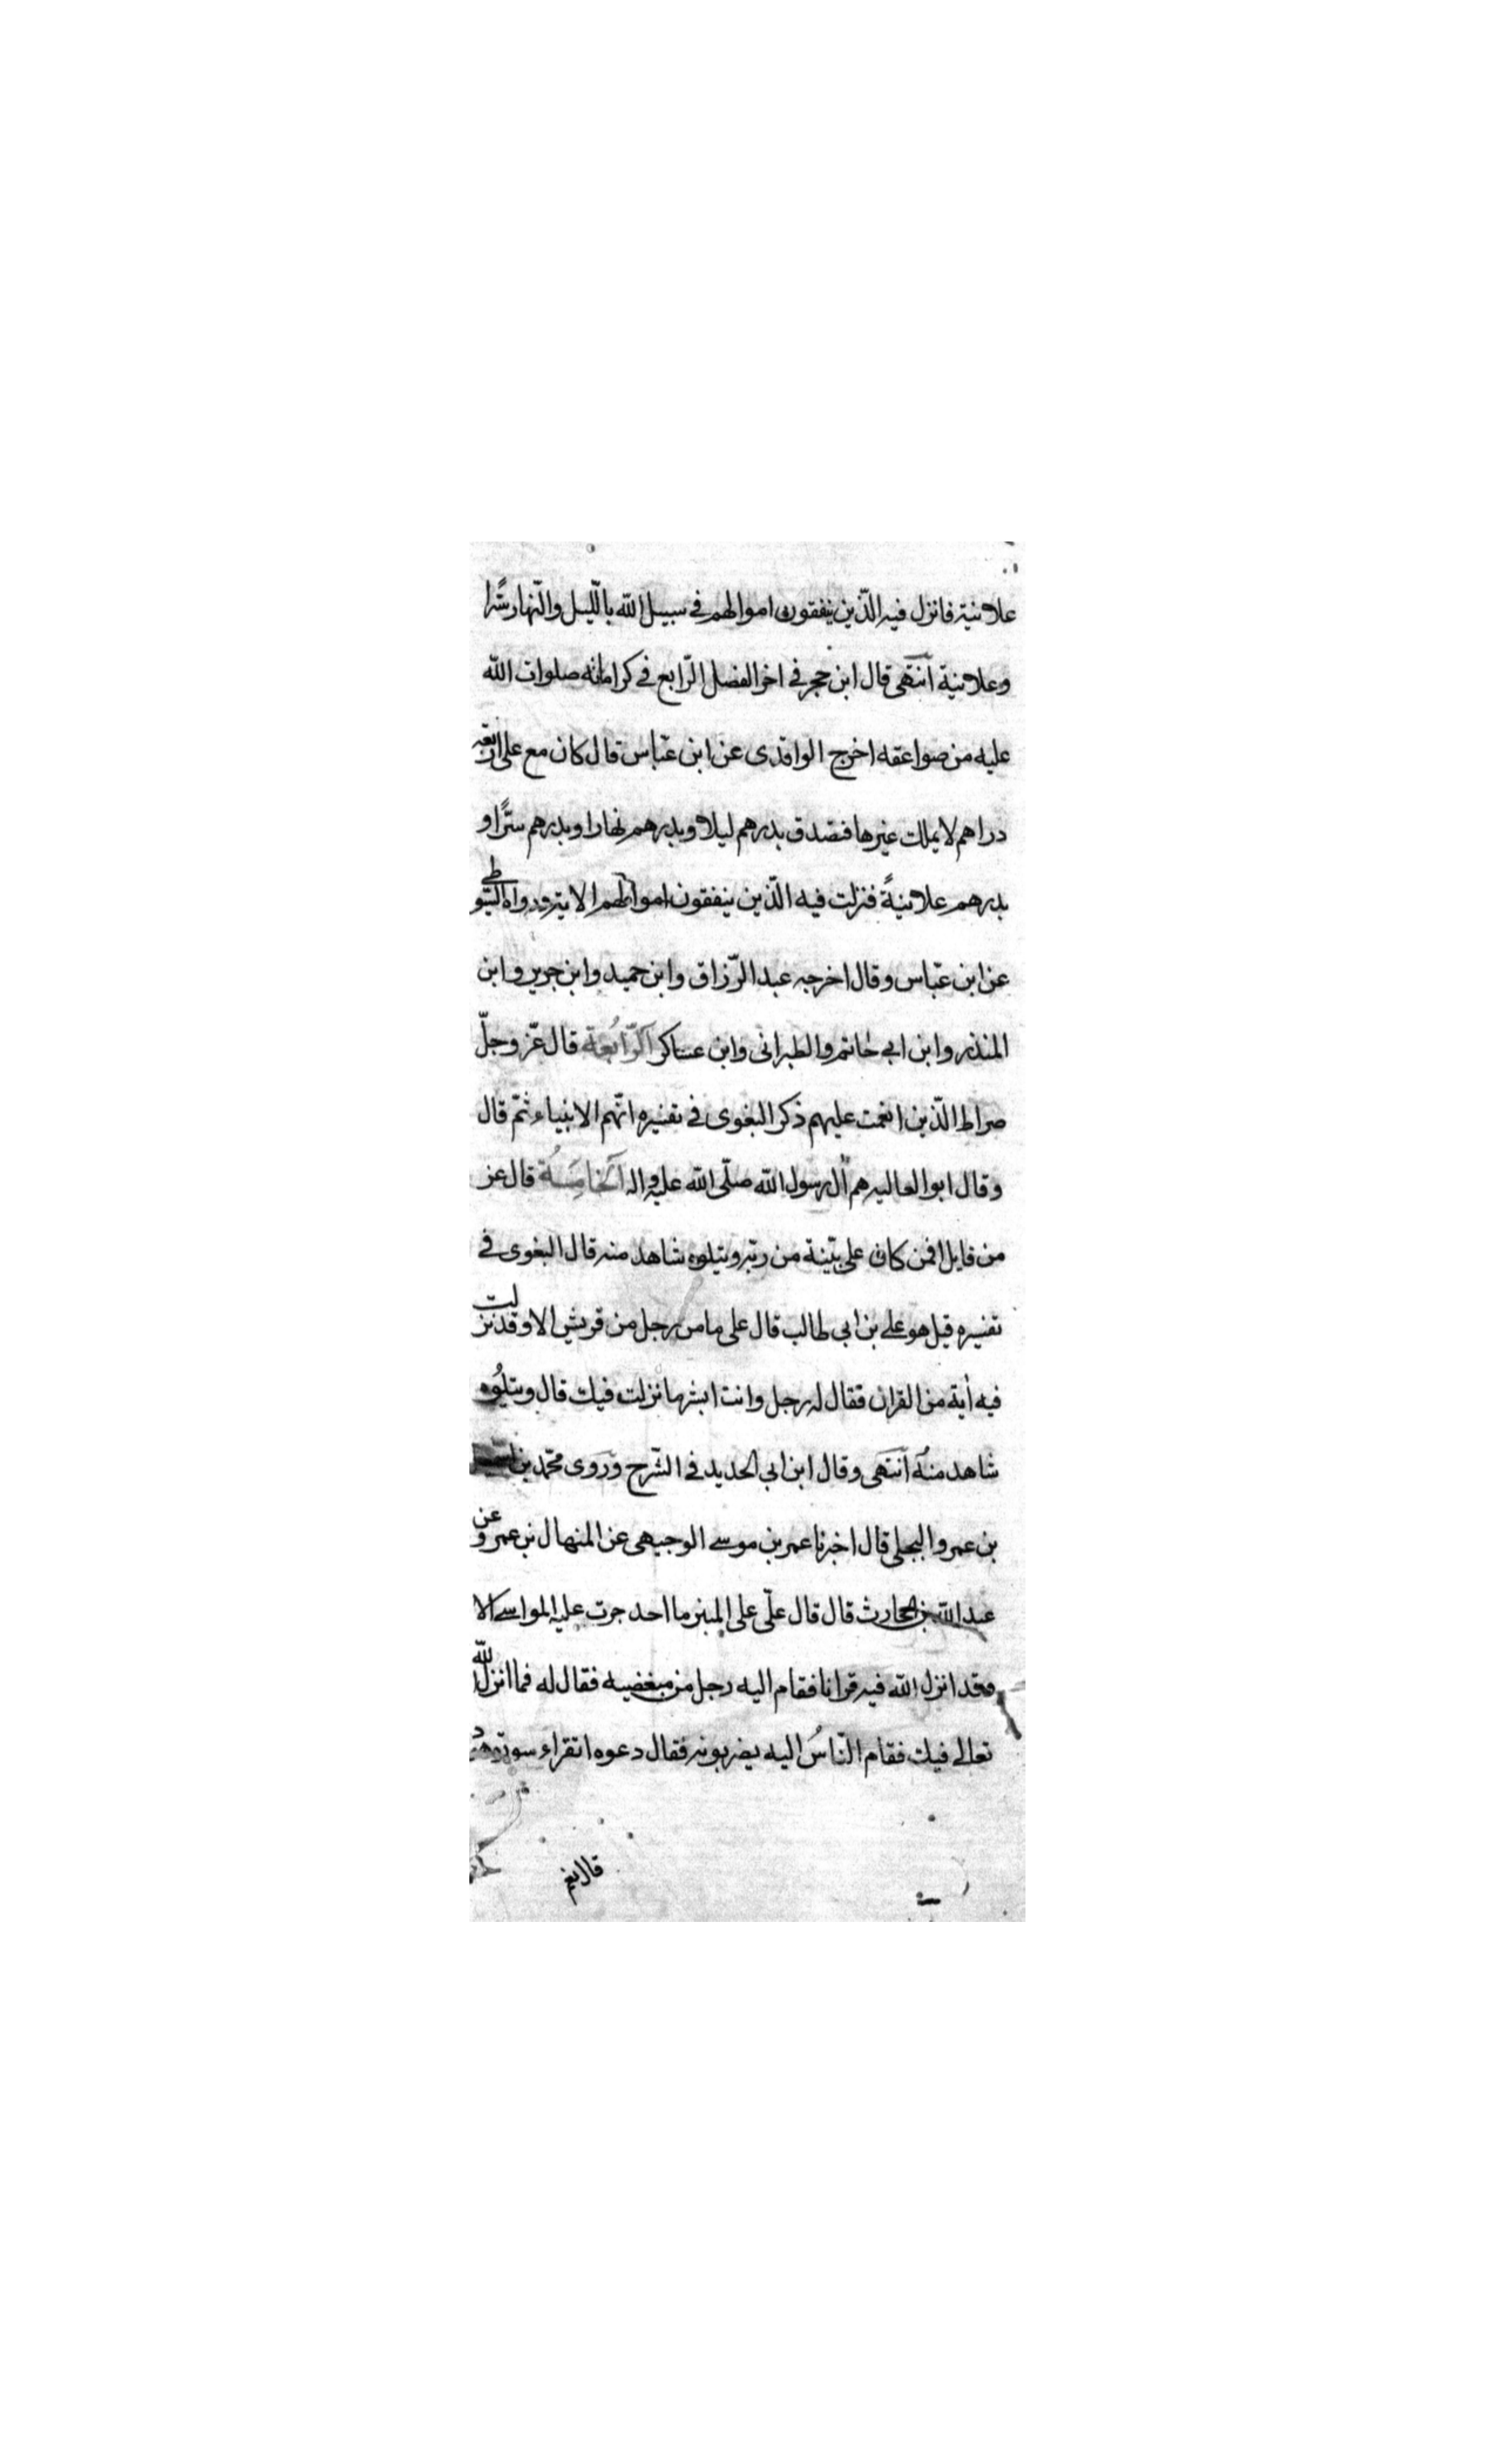 علانية فانزل فيه الّذين ينفقون اموالهم في سبيل الله بالّليل والنّهار سرًّا
وعلانية انتهى قال ابن حجر في اخر الفصل الرّابع في كراماته صلوات الله
عليه من صواعقه اخرج الواقدى عن ابن عبّاس قال كان مع على اربعة
دراهم لا يملك غيرها فتصدق بدرهم ليلا وبدرهم نهارا وبدرهم سرًّا و
بدرهم علانيةً فنزلت فيه الّذين ينفقون اموالهم الاية ورواه السّيوطي
عن ابن عبّاس وقال اخرجه عبد الرّزاق وابن حميد وابن جرير وابن
المنذر وابن ابي حاتم والطبرانى وابن عساكر الرّابعة قال عزّ وجلّ
صراط الّذين انعمت عليهم ذكر البغوى في تفسيره انّهم الانبياء ثمّ قال
وقال ابو العاليه هم ال رسول الله صلّى الله عليه واله الخامِسَةُ قال عز
من قايل افمن كان على بيّنة من ربّه ويتلوه شاهد منه قال البغوى في
تفسيره قيل هو علي بن ابي طالب قال على ما من رجل من قريش الا وقد نزلت
فيه اية من القران فقال له رجل وانت ايش ما نزلت فيك قال ويتلُوه
شاهد منهُ انتهى وقال ابن ابي الحديد في الشّرح وروى محمّد بن
بن عمرو البجلى قال اخبرنا عمر بن موسى الوجيهى عن المنهال بن عمرو عن
عبد الله بن الحارث قال قال علّى على المنبر ما احد جرت عليه المواسى الا
وقد انزل الله فيه قرانا فقام اليه رجل من مبغضيه فقال له فما انزل الله
تعالى فيك فقام النّاسُ اليه يضربونه فقال دعوه اتقراء سورة هود
قال نعم